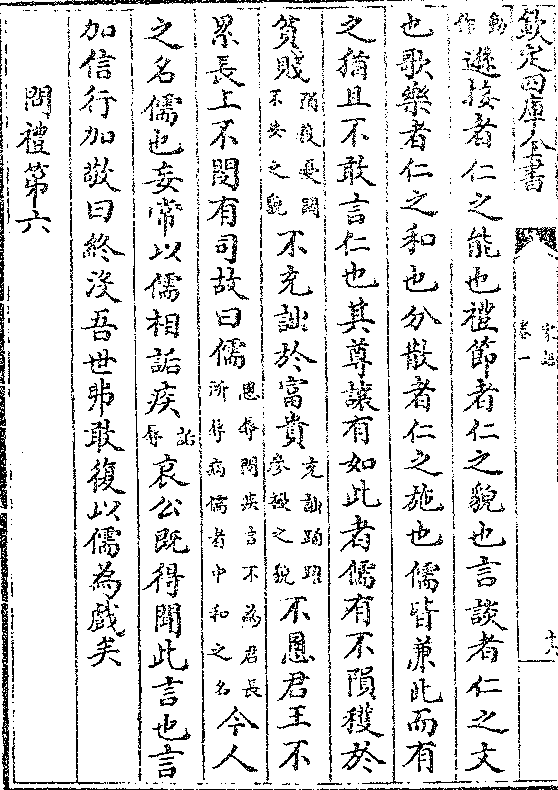 欽定四庫全書
家語
卷一
動作遜接者仁之能也禮節者仁之貌也言談者仁之文
也歌樂者仁之和也分散者仁之施也儒皆兼此而有
之猶且不敢言仁也其尊讓有如此者儒有不隕穫於
貧賤隕穫憂悶不安之貌不充詘於富貴充詘踊躍參擾之貌不慁君王不
累長上不閔有司故曰儒慁辱閔疾言不為君長所辱病儒者中和之名今人
之名儒也妄常以儒相詬疾詬辱哀公既得聞此言也言
加信行加敬曰終沒吾世弗敢復以儒為戲矣
問禮第六